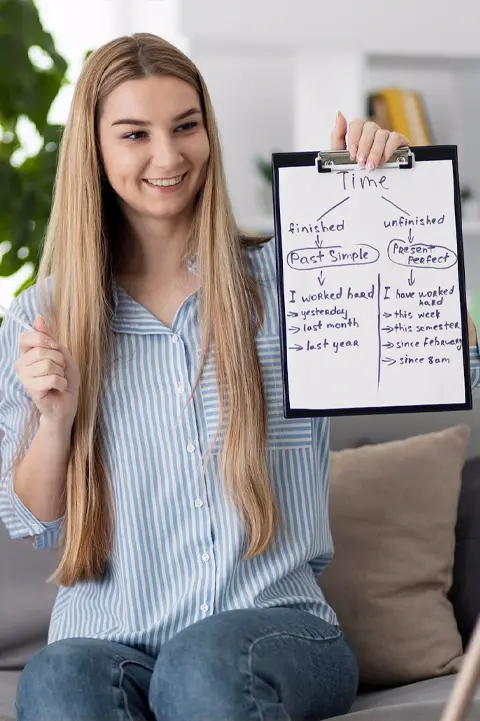 Time
finished
unfinished
Past Simple
Present
Perfect
I worked hard
→ yesterday
→ last month
→ last year
I have worked
hard
→ this week
→ this semester
→ since february
→ since 8am